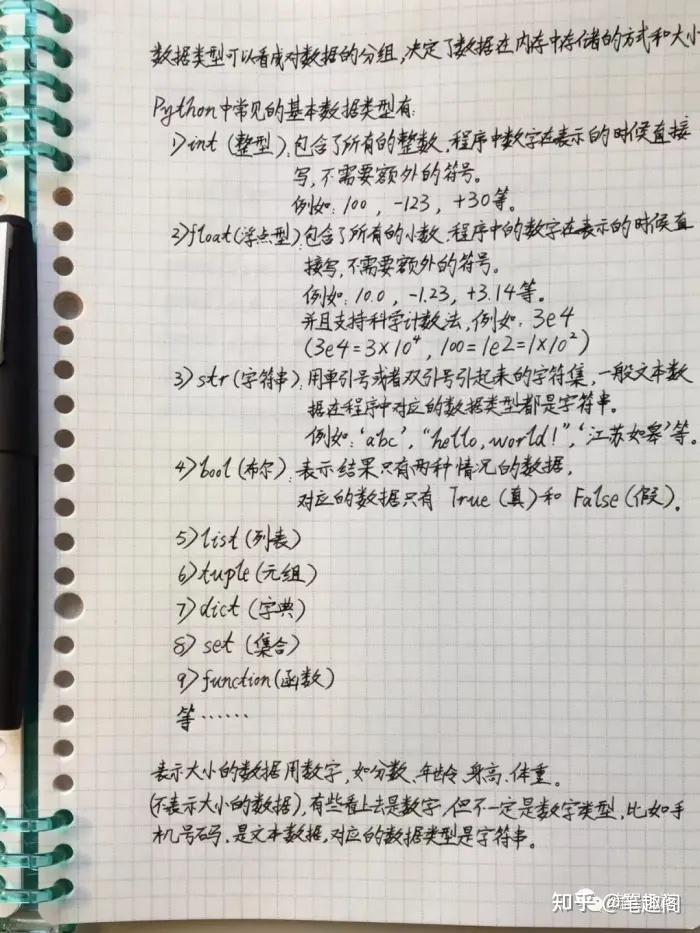 数据类型可以看成对数据的分组,决定了数据在内存中存储的方式和大小
Python中常见的基本数据类型有:
1>int (整型):包含了所有的整数,程序中数字在表示的时候直接
写,不需要额外的符号。
例如:100 , -123 , +30等。
2>float(浮点型):包含了所有的小数,程序中的数字在表示的时候直
接写,不需要额外的符号。
例如:10.0 , -1.23 , +3.14等。
并且支持科学计数法,例如:3e4
(3e4=3×10⁴ , 100=1e2=1×10²)
3>str(字符串):用单引号或者双引号引起来的字符集,一般文本数
据在程序中对应的数据类型都是字符串。
例如:'abc', "hello,world!", '江苏如皋'等。
4>bool(布尔):表示结果只有两种情况的数据,
对应的数据只有 True (真)和 False(假)。
5>list(列表)
6>tuple(元组)
7>dict (字典)
8>set (集合)
9>function(函数)
等……
表示大小的数据用数字,如分数、年龄、身高、体重。
(不表示大小的数据),有些看上去是数字,但不一定是数字类型,比如手
机号码,是文本数据,对应的数据类型是字符串。
知乎 @笔趣阁